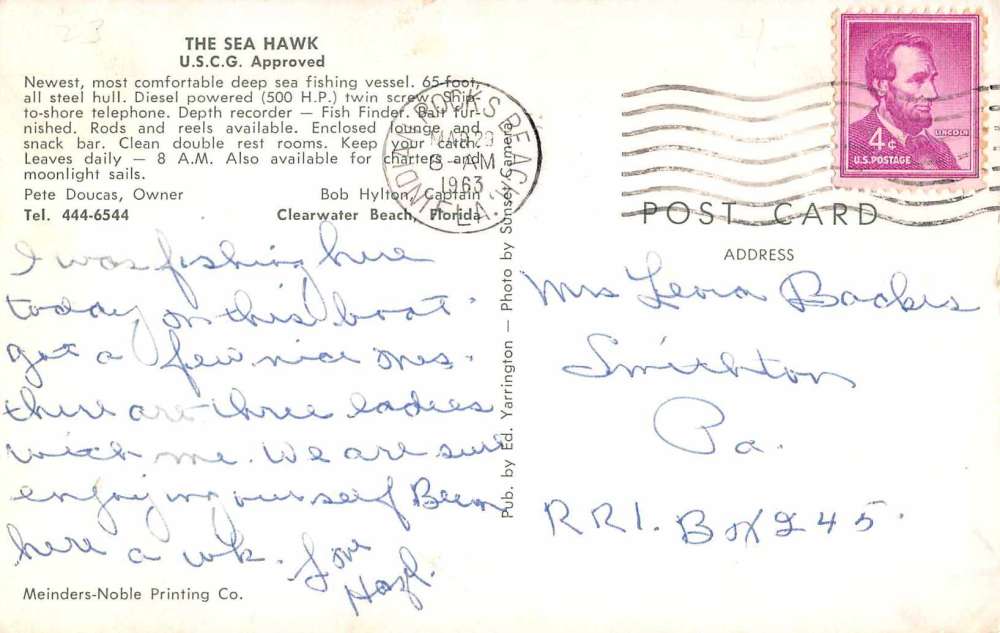 THE SEA HAWK
U.S.C.G. Approved
Newest, most comfortable deep sea fishing vessel. 65-foot,
all steel hull. Diesel powered (500 H.P.) twin screw. Ship-
to-shore telephone. Depth recorder — Fish Finder. Bait fur-
nished. Rods and reels available. Enclosed lounge and
snack bar. Clean double rest rooms. Keep your catch.
Leaves daily — 8 A.M. Also available for charters and
moonlight sails.
Pete Doucas, Owner Bob Hylton, Captain
Tel. 444-6544 Clearwater Beach, Florida
I was fishing here
today on this boat
got a few nice ones.
there are three ladies
with me. We are sure
enjoying ourself Been
here a wk. Love
Hazl.
Meinders-Noble Printing Co.
Pub. by Ed. Yarrington — Photo by Sunset Camera
INDIAN ROCKS BEACH, FLA.
MAR 29
AM
1963
4¢
LINCOLN
U.S. POSTAGE
POST CARD
ADDRESS
Mrs Leora Backus
Smithton
Pa.
RR1. Box 245.